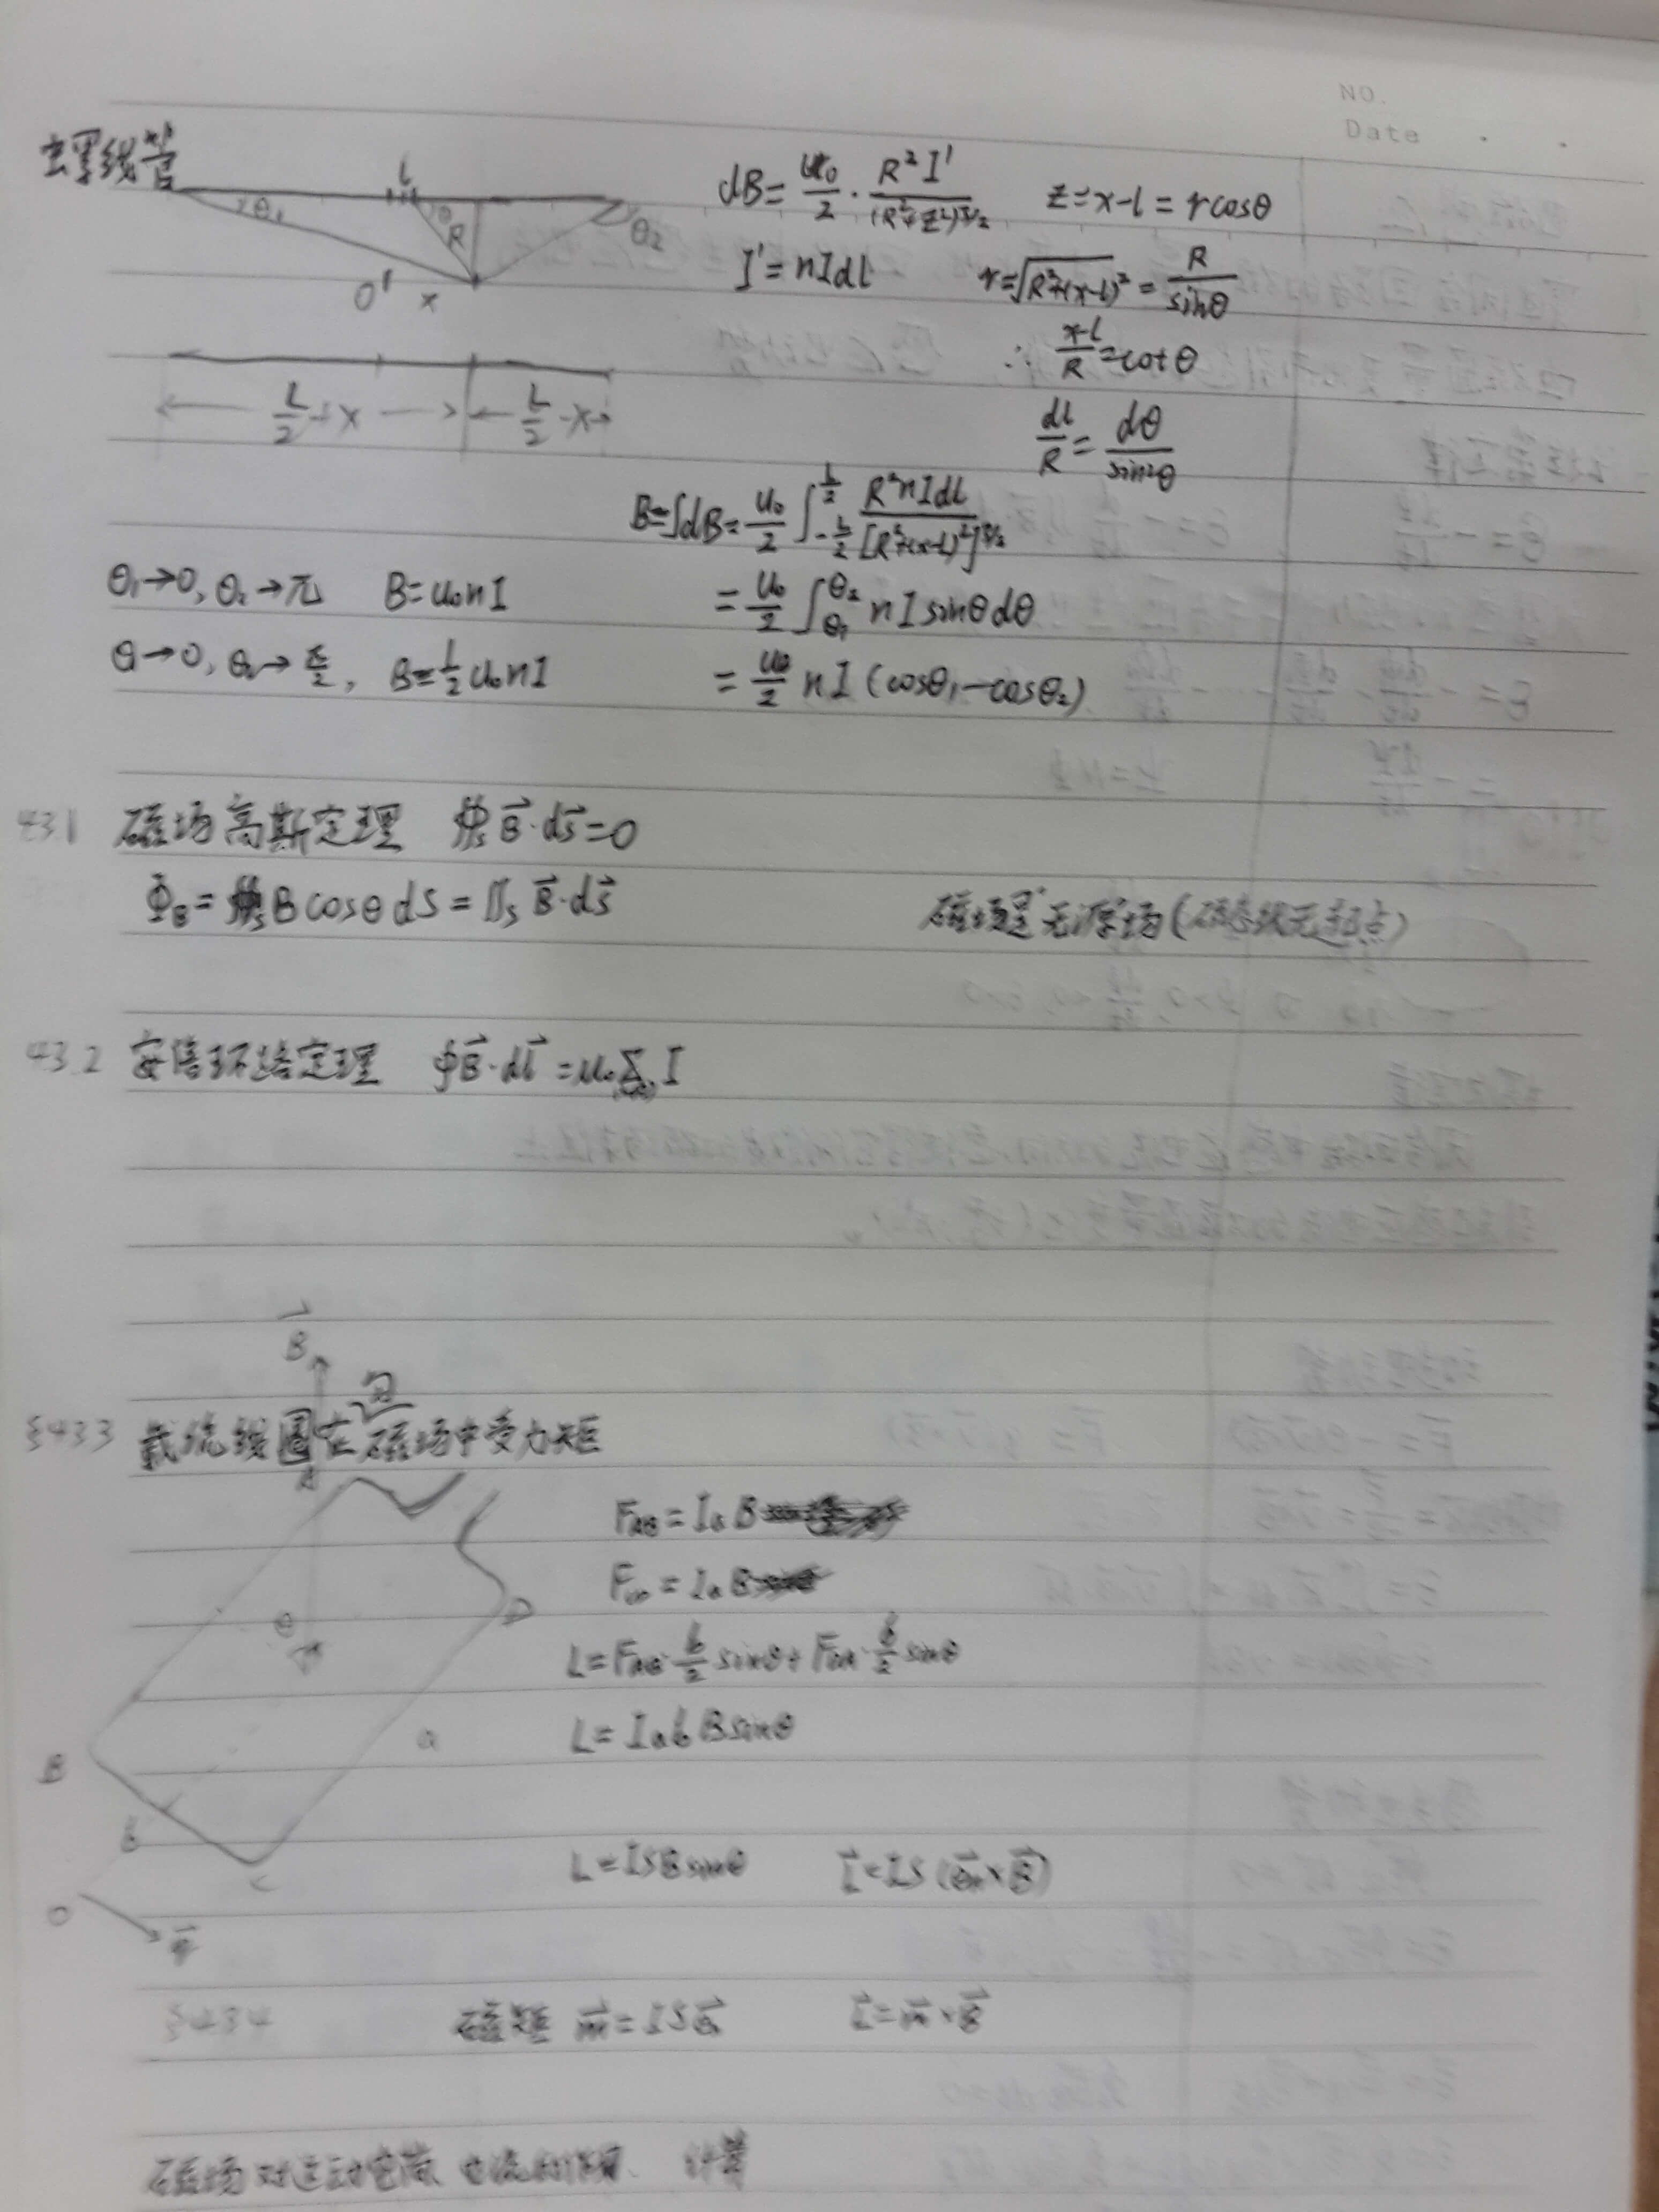 NO.
Date
螺线管
l
θ₁ θ R θ₂
O' x
dB=\frac{u₀}{2}·\frac{R²I'}{(R²+z²)^{3/2}} z=x-l=rcosθ
I'=nIdl r=\sqrt{R²+(x-l)²}=\frac{R}{sinθ}
∴\frac{x-l}{R}=cotθ
\frac{L}{2}+x \frac{L}{2}-x
\frac{dl}{R}=\frac{dθ}{sin²θ}
B=∫dB=\frac{u₀}{2}∫_{-\frac{L}{2}}^{\frac{L}{2}}\frac{R²nIdl}{[R²+(x-l)²]^{3/2}}
θ₁→0, θ₂→π B=u₀nI =\frac{u₀}{2}∫_{θ₁}^{θ₂}nIsinθdθ
θ₁→0, θ₂→\frac{π}{2}, B=\frac{1}{2}u₀nI =\frac{u₀}{2}nI(cosθ₁-cosθ₂)
431 磁场高斯定理 ∯ₛ\vec{B}·d\vec{s}=0
Φ_B=Bcosθds=∬ₛ\vec{B}·d\vec{s} 磁场是"无源"场(磁感线无起点)
432 安培环路定理 ∮\vec{B}·d\vec{l}=u₀ΣI
\vec{B}
§433 载流线圈在磁场中受力矩
A
F_{AB}=IaB
F_{CD}=IaB
D
θ
L=F_{AB}·\frac{b}{2}sinθ+·\frac{b}{2}sinθ
L=IabBsinθ
a
B
b
C
L=ISBsinθ \vec{L}=IS(\vec{e}ₙ×\vec{B})
O
§434 磁矩 \vec{m}=IS\vec{e}ₙ \vec{L}=\vec{m}×\vec{B}
磁场对运动电荷、电流的作用、计算